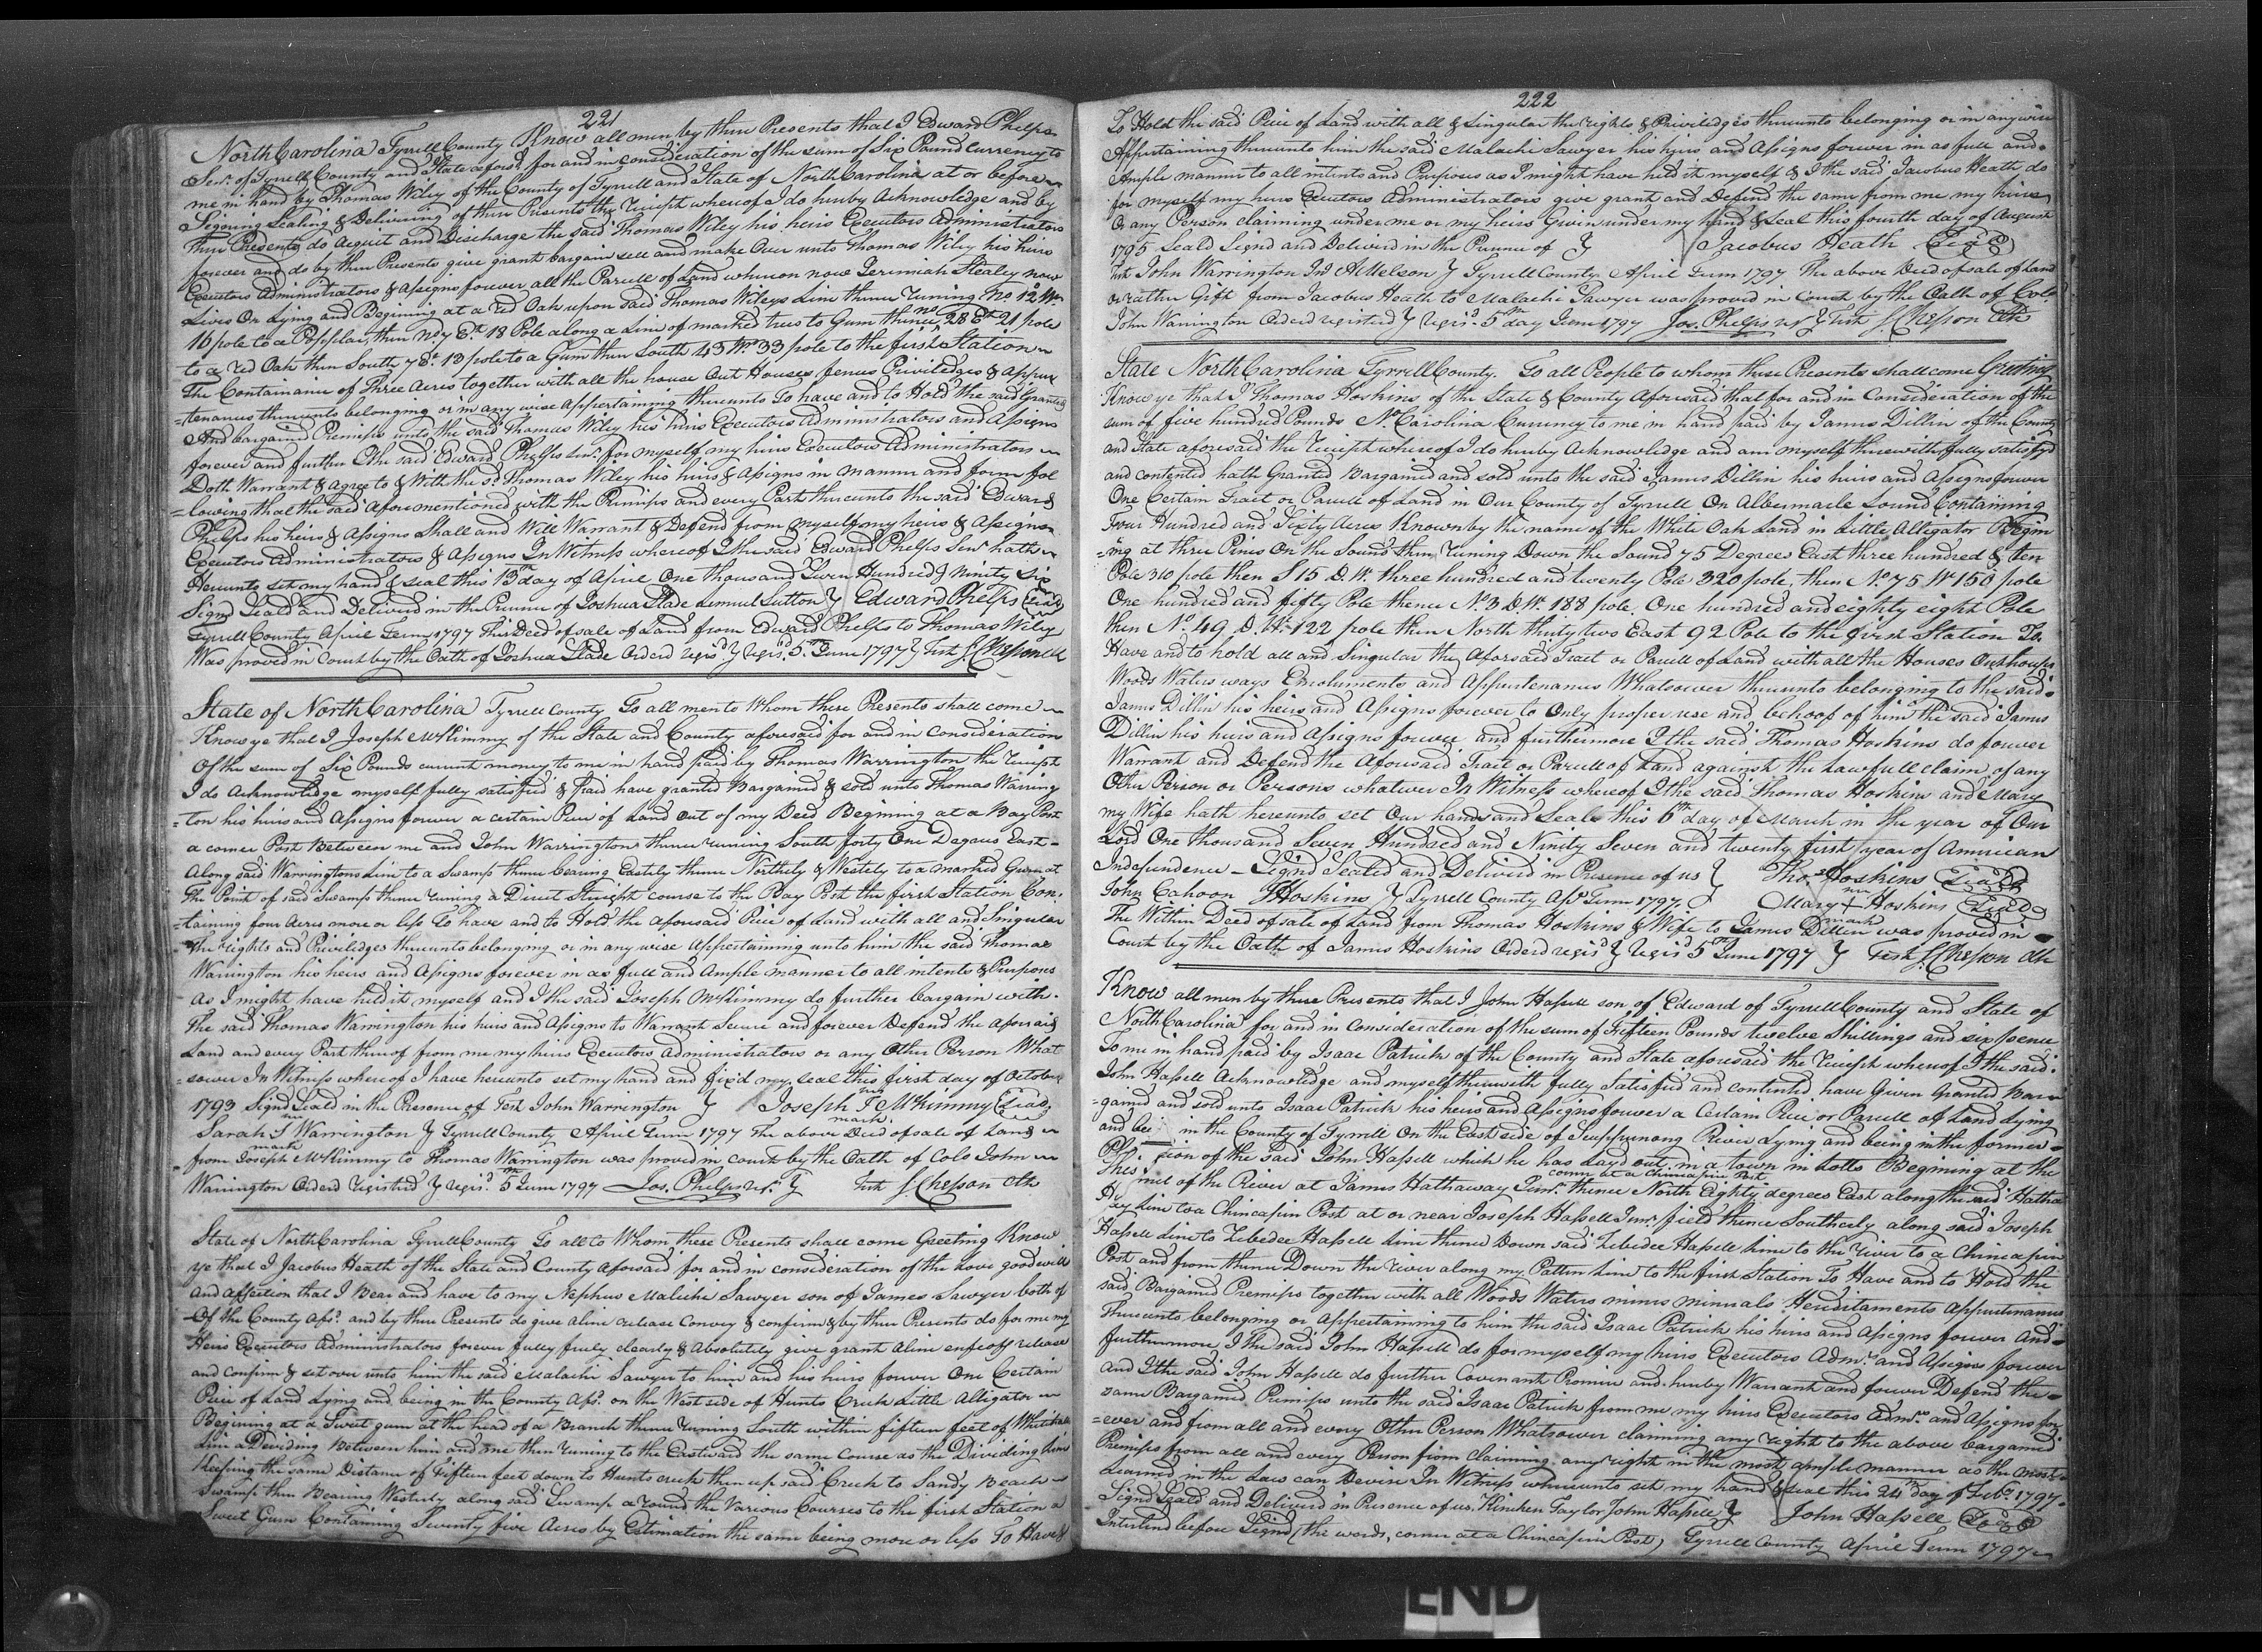 221
North Carolina Tyrrell County Know all men by these Presents that I Edward Phelps
Senr. of Tyrrell County and State aforesd. for and in consideration of the sum of Six Pound Currency to
me in hand by Thomas Wiley of the County of Tyrrell and State of North Carolina at or before
Signing Sealing & Delivering of these Presents the Receipt whereof I do hereby Acknowledge and by
these Presents do Acquit and Discharge the said Thomas Wiley his heirs Executors Administrators
forever and do by these Presents give grant bargain sell and make Over unto Thomas Wiley his heirs
Executors Administrators & Assigns forever all the Parcell of Land whereon now Jeremiah Stealey now
Lives On Lying and Begining at a red Oak upon said Thomas Wileys Line thence runing No. 12 Wt.
16 pole to a Popplar, then No. 7 Et. 18 Pole along a Line of marked trees to Gum thence No. 28 Et. 21 pole
to a red Oak then South 78t. 13 pole to a Gum then South 43 Wt. 33 pole to the first Station
The Containance of Three Acres together with all the house Out Houses fences Priviledges & appur
=tenances thereunto belonging or in any wise Appertaining thereunto To have and to Hold the said Granted
And bargained Premises unto the said Thomas Wiley his heirs Executors Administrators and Assigns
forever and further I the said Edward Phelps senr. for myself my heirs Executors Administrators
Doth Warrant & agree to & With the sd. Thomas Wiley his heirs & Assigns in manner and form fol
=lowing that the said Aforementioned with the Premises and every Part thereunto the said Edward
Phelps his heirs & Assigns Shall and Will Warrant & Defend from myself my heirs & Assigns
Executors Administrators & Assigns In Witness whereof I the said Edward Phelps Senr. hath
Hereunto set my hand & seal this 13th day of April One thousand Seven Hundred & Ninity Six
Signd Seald and Deliverd in the Presence of Joshua Slade Lemuel Sutton } Edward Phelps (Seal)
Tyrrell County April Term 1797 This Deed of sale of Land from Edward Phelps to Thomas Wiley
Was proved in Court by the Oath of Joshua Slade Orderd regisd. } Regisd. 5th June 1797 } Test J. Chesson Clk
State of North Carolina Tyrrell County To all men to Whom these Presents shall come
Know ye that I Joseph McKimmy of the State and County aforesaid for and in consideration
Of the sum of Six Pounds currant money to me in hand paid by Thomas Warrington the receipt
I do Acknowledge myself fully satisfied & Paid have granted Bargained & sold unto Thomas Warring
=ton his heirs and Assigns forever a certain Piece of Land out of my Deed Begining at a Bay Post
a corner Post Between me and John Warrington thence runing South forty One Degrees East
Along said Warringtons Line to a Swamp thence bearing Eastely thence Northely & Westely to a marked Gum at
The Point of said Swamp thence runing a Direct Streight course to the Bay Post the first Station Con.
=taining four Acres more or less To have and to Hold the aforesaid Piece of Land with all and Singular
The rights and Priviledges thereunto belonging or in any wise Appertaining unto him the said Thomas
Warrington his heirs and Assigns forever in as full and Ample manner to all intents & Purposes
As I might have held it myself and I the said Joseph McKimmy do further bargain with
The said Thomas Warrington his heirs and Assigns to Warrant Secure and forever Defend the aforesaid
Land and every Part thereof from me my heirs Executors Administrators or any Other Person What
=soever In Witness whereof I have hereunto set my hand and fix'd my seal this first day of October
1793 Signd Seald in the Presence of Test John Warrington } Joseph his mark McKimmy (Seal)
Sarah her mark Warrington } Tyrrell County April Term 1797 The above Deed of sale of Land
from Joseph McKimmy to Thomas Warrington was proved in court by the Oath of Colo John
Warrington Orderd registred } regisd. 5th June 1797 Jos. Phelps Rr. } Test J. Chesson Clk
State of North Carolina Tyrrell County To all to Whom these Presents shall come Greeting Know
ye that I Jacobus Heath of the State and County aforesaid for and in consideration of the love goodwill
and affection that I Bear and have to my Nephew Malichi Sawyer son of James Sawyer both of
Of the County afsd. and by these Presents do give aline release Convey & confirm & by these Presents do for me my
Heirs Executors Administrators forever fully freely clearly & Absolutely give grant Aline enfeoff release
and confirm & set over unto him the said Malachi Sawyer to him and his heirs forever One Certain
Piece of Land Lying and being in the County Afsd. on the West side of Hunts Creek Little Alligator
Begining at a Sweet gum at the head of a Branch thence runing South within fifteen feet of Whitehall
Line a Deviding Between him and me then runing to the Eastward the same Course as the Dividing line
Keeping the same Distance of Fifteen feet down to Hunts creek then up said Creek to Sandy Beach
Swamp then Bearing Westerly along said Swamp a round the Various Courses to the first Station a
Sweet Gum Containing Seventy five Acres by Estimation the same being more or less To Have &
222
To Hold the said Piece of Land with all & Singular the rights & Priviledges thereunto belonging or in any wise
Appertaining thereunto him the said Malachi Sawyer his heirs and Assigns forever in as full and
Ample manner to all intents and Purposes as I might have held it myself & I the said Jacobus Heath do
for myself my heirs Executors Administrators give grant and Defend the same from me my heirs
Or any Person claiming under me or my heirs Given under my hand & seal this fourth day of August
1795 Seald Signd and Deliverd in the Presence of } Jacobus Heath (Seal)
Test John Warrington Jnr A Nelson } Tyrrell County April Term 1797 The above Deed of sale of Land
or rather Gift from Jacobus Heath to Malachi Sawyer was proved in Court by the Oath of Colo
John Warrington Orderd registerd } Regisd. 5th day June 1797 Jos. Phelps Rr } Test J. Chesson Clk
State North Carolina Tyrrell County. To all People to whom these Presents shall come Greeting
Know ye that I Thomas Hoskins of the State & County Aforesaid that for and in Consideration of the
sum of five hundred Pounds No. Carolina Currency to me in hand paid by James Dillin of the County
and State aforesaid the receipt whereof I do hereby Acknowledge and am myself therewith fully satisfyd
and contented hath Granted Bargained and sold unto the said James Dillin his heirs and Assigns forever
One Certain Tract or Parcell of Land in Our County of Tyrrell On Albermarle Sound Containing
Four Hundred and Sixty Acres Known by the name of the White Oak Land in Little Alligator Begin
=ing at three Pines On the Sound then runing Down the Sound 75 Degrees East three hundred & ten
Pole 310 pole then S 15 D. W. three hundred and twenty Pole 320 pole, then No. 75 Wt 150 pole
One hundred and fifty Pole thence No. 3 D. Wt. 188 pole, One hundred and eighty eight Pole
then No. 49 D. Wt. 122 pole then North thirty two East 92 Pole to the first Station To
Have and to hold all and Singular the Aforsaid Tract or Parcell of Land with all the Houses Outhouses
Woods Waters ways Emoluments and Appurtenances Whatsoever thereunto belonging to the said
James Dillin his heirs and Assigns forever to Only proper use and behoof of him the said James
Dillin his heirs and Assigns forever and furthermore I the said Thomas Hoskins do forever
Warrant and Defend the Aforesaid Tract or Parcell of Land against the Lawfull claim of any
Other Person or Persons whatever In Witness whereof I the said Thomas Hoskins and Mary
my Wife hath hereunto set Our hands and Seals this 6th day of March in the year of Our
Lord One thousand Seven Hundred and Ninity Seven and twenty first year of American
Independence Signd Sealed and Deliverd in Presence of us } Thos. Hoskins (Seal)
John Cahoon J Hoskins } Tyrrell County Apl. Term 1797 } Mary her mark Hoskins (Seal)
The Within Deed of sale of Land from Thomas Hoskins & Wife to James Dillin was proved in
Court by the Oath of James Hoskins Orderd regisd. } Regisd 5th June 1797 } Test J. Chesson Clk
Know all men by these Presents that I John Hassell son of Edward of Tyrrell County and State of
North Carolina for and in Consideration of the sum of Fifteen Pounds twelve Shillings and six pence
To me in hand paid by Isaac Patrick of the County and State aforesaid the receipt whereof I the said
John Hassell Acknowledge and myself therewith fully Satisfied and contented have Given Granted Bar
=gained and sold unto Isaac Patrick his heirs and Assigns forever a Certain Piece or Parcell of Land Lying
and bei in the County of Tyrrell On the East side of Scuppernong River Lying and being in the former
ion of the said John Hassell which he has Layd out in a town in Lotts Begining at the
corner at a Chincapin Post
of the River at James Hathaway Junr. thence North Eighty degrees East along the said Hatha
way line to a Chincapin Post at or near Joseph Hassell Junr. field thence Southerly along said Joseph
Hassell Line to Zebedee Hassell line thence Down said Zebedee Hassell line to the river to a Chincapin
Post and from thence Down the river along my Patten line to the first Station To Have and to Hold the
said Bargained Premises together with all Woods Waters mines minerals Hereditaments Appurtenances
Thereunto belonging or Appertaining to him the said Isaac Patrick his heirs and Assigns forever And
furthermore I the said John Hassell do for myself my heirs Executors Admrs. and Assigns forever
and I the said John Hassell do further Covenant Promise and hereby Warrant and forever Defend the
same Bargained Premises unto the said Isaac Patrick from me my heirs Executors Admrs. and Assigns for
=ever and from all and every Other Person Whatsoever claiming any right to the above bargained
Premises from all and every Person from Claiming any right in the most ample manner as the most
Learned in the Law can Devise In Witness whereunto set my hand & seal this 24th day of Feby. 1797
Signd Seald and Deliverd in Presence of us, Kinchen Taylor John Hassell } John Hassell (Seal)
Interlind before Signd (the words, corner at a Chincapin Post) Tyrrell County April Term 1797
END